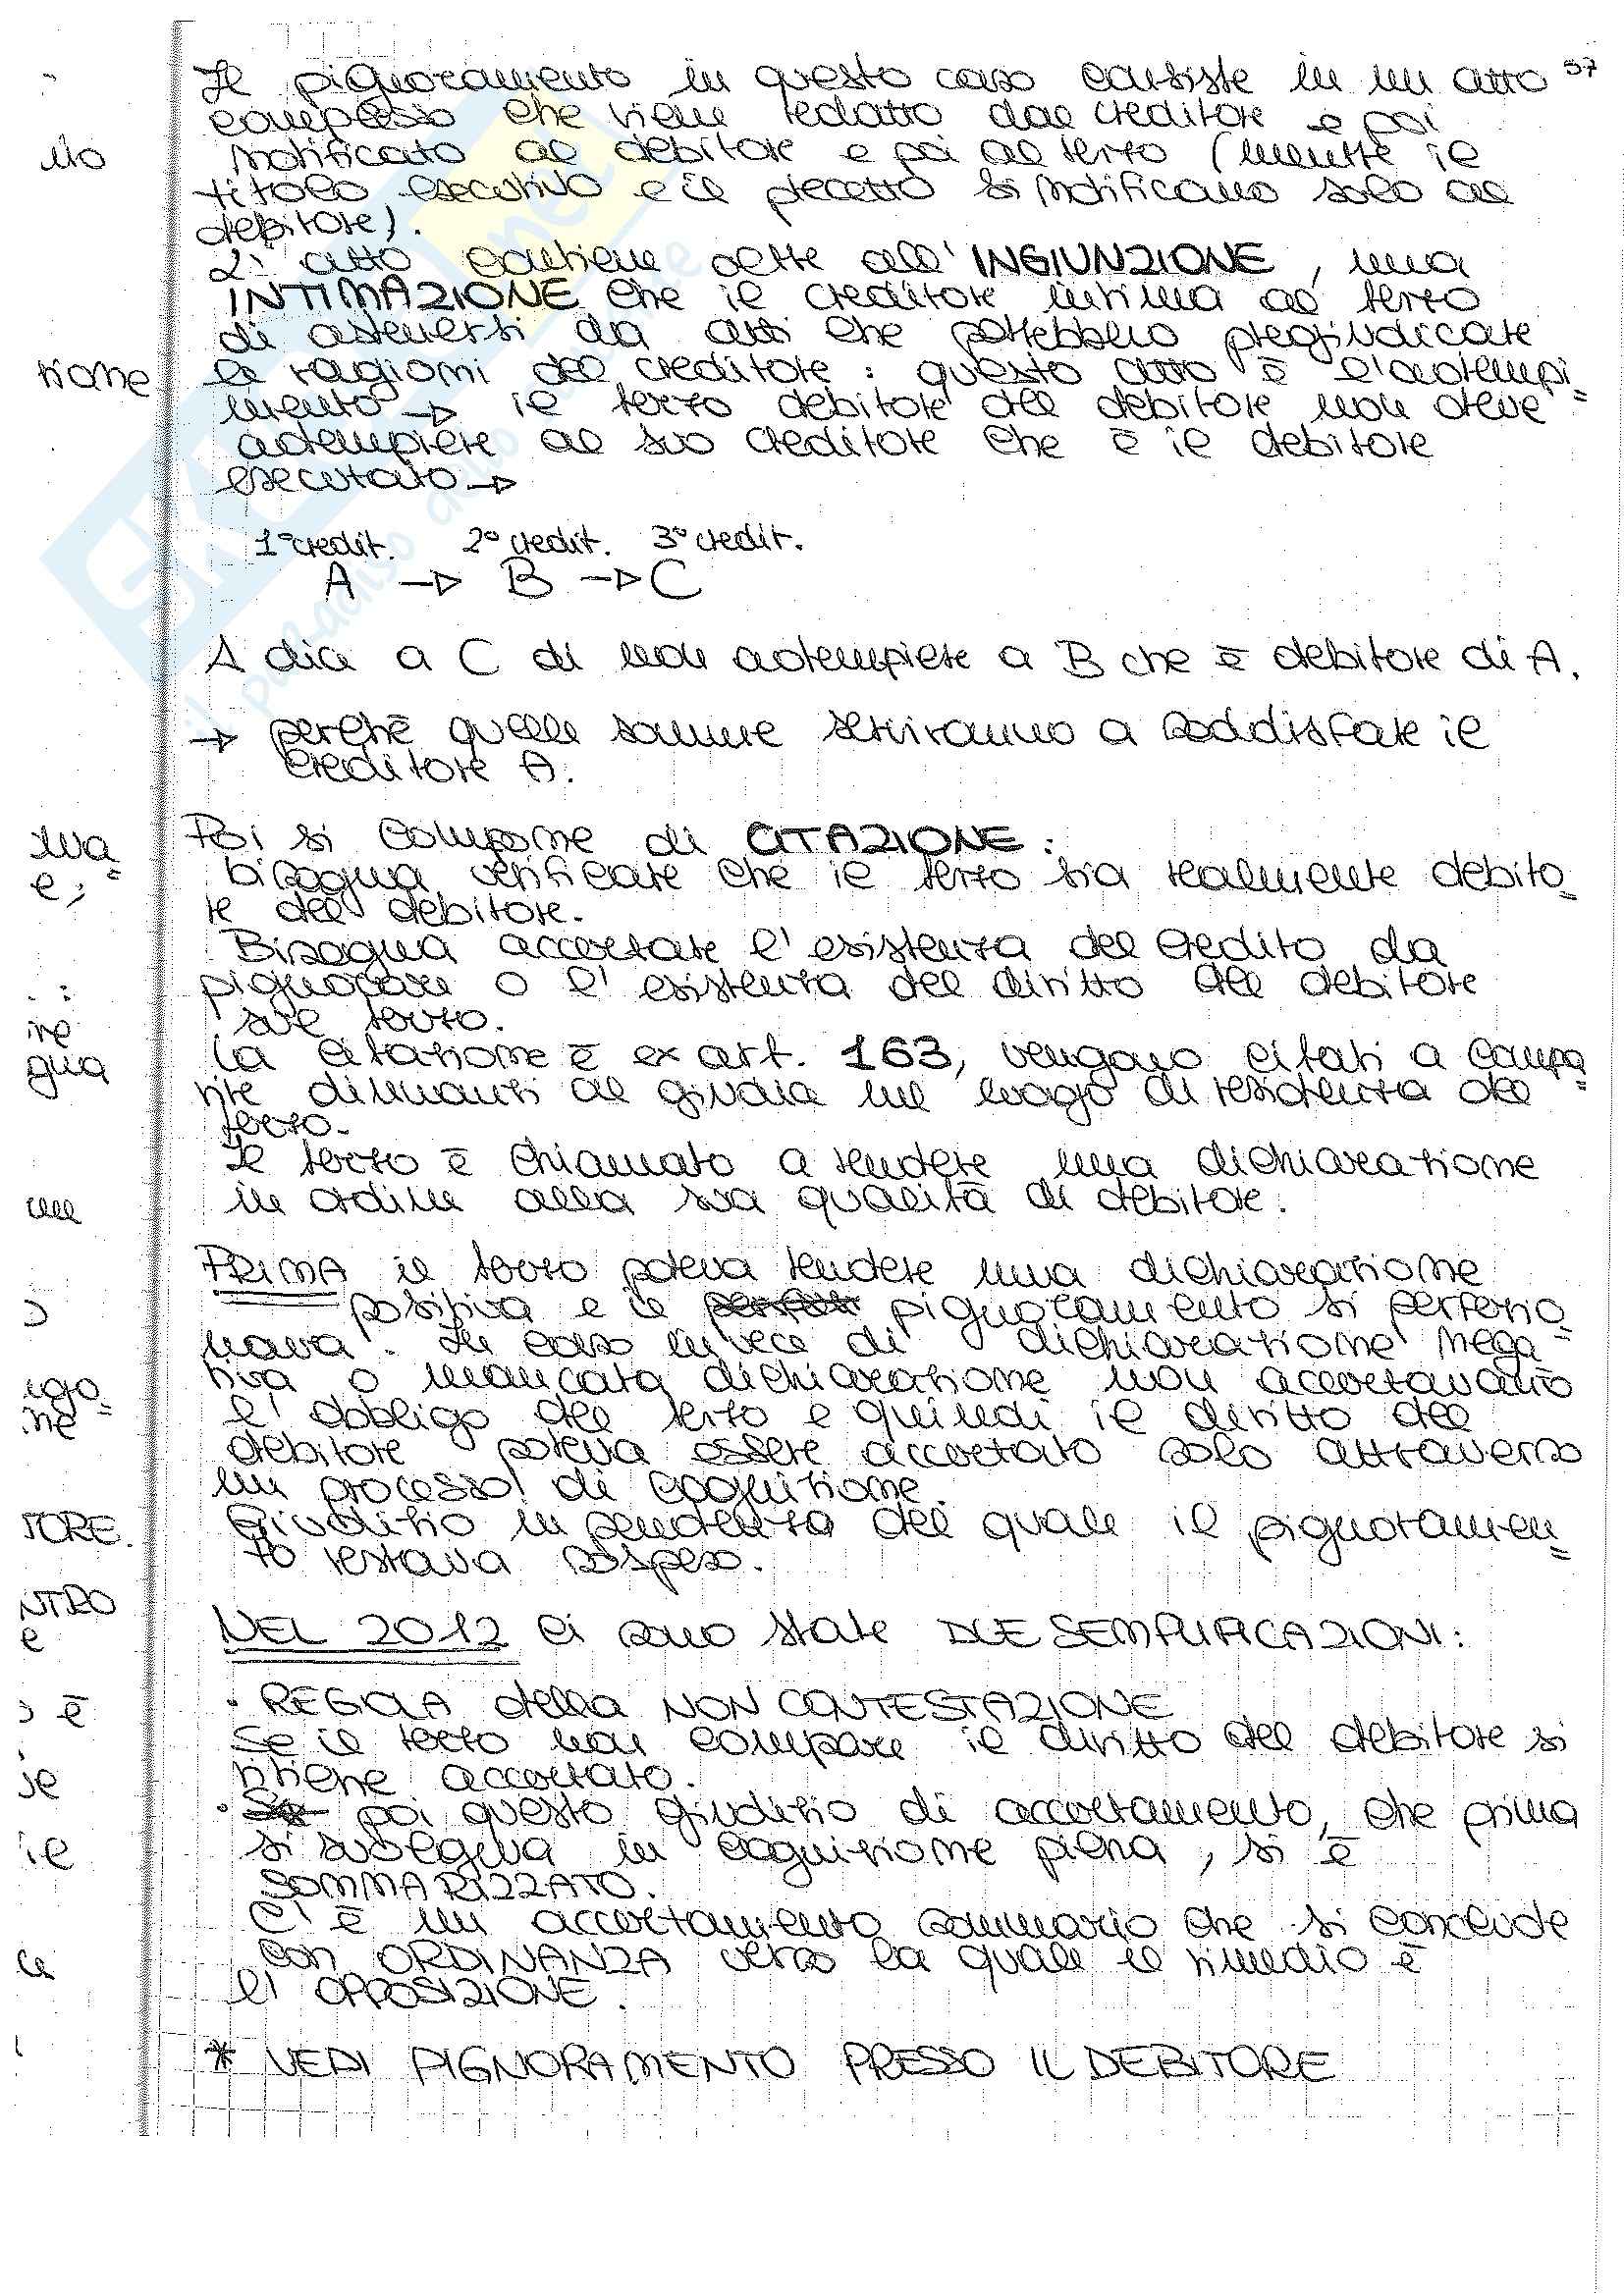 57
Il pignoramento in questo caso consiste in un atto
complesso che viene redatto dal creditore e poi
notificato al debitore e poi al terzo (mentre il
titolo esecutivo e il precetto si notificano solo al
debitore).
L' atto contiene oltre all' INGIUNZIONE, una
INTIMAZIONE che il creditore intima al terzo
di astenersi da atti che potrebbero pregiudicare
le ragioni del creditore: questo atto è l'adempi=
mento → il terzo debitore del debitore non deve
adempiere al suo creditore che è il debitore
esecutato →
1° credit. 2° credit. 3° credit.
A → B → C
A dice a C di non adempiere a B che è debitore di A.
→ perchè quelle somme serviranno a soddisfare il
creditore A.
Poi si compone di CITAZIONE:
bisogna verificare che il terzo sia realmente debito=
re del debitore.
Bisogna accertare l' esistenza del credito da
pignorare o l' esistenza del diritto del debitore
sul terzo.
La citazione è ex art. 163, vengono citati a compa=
rire dinnanzi al giudice nel luogo di residenza del
terzo.
Il terzo è chiamato a rendere una dichiarazione
in ordine alla sua qualità di debitore.
PRIMA il terzo poteva rendere una dichiarazione
positiva e il pignoramento si perfezio=
nava. In caso invece di dichiarazione nega=
tiva o mancata dichiarazione non accertavano
l' obbligo del terzo e quindi il diritto del
debitore poteva essere accertato solo attraverso
un processo di cognizione.
Giudizio in pendenza del quale il pignoramen=
to restava sospeso.
NEL 2012 ci sono state DUE SEMPLIFICAZIONI:
· REGOLA della NON CONTESTAZIONE
Se il terzo non compare il diritto del debitore si
ritiene accertato.
· Se poi questo giudizio di accertamento, che prima
si svolgeva in cognizione piena, si è
SOMMARIZZATO.
C' è un accertamento sommario che si conclude
con ORDINANZA verso la quale il rimedio è
l' OPPOSIZIONE.
* VEDI PIGNORAMENTO PRESSO IL DEBITORE